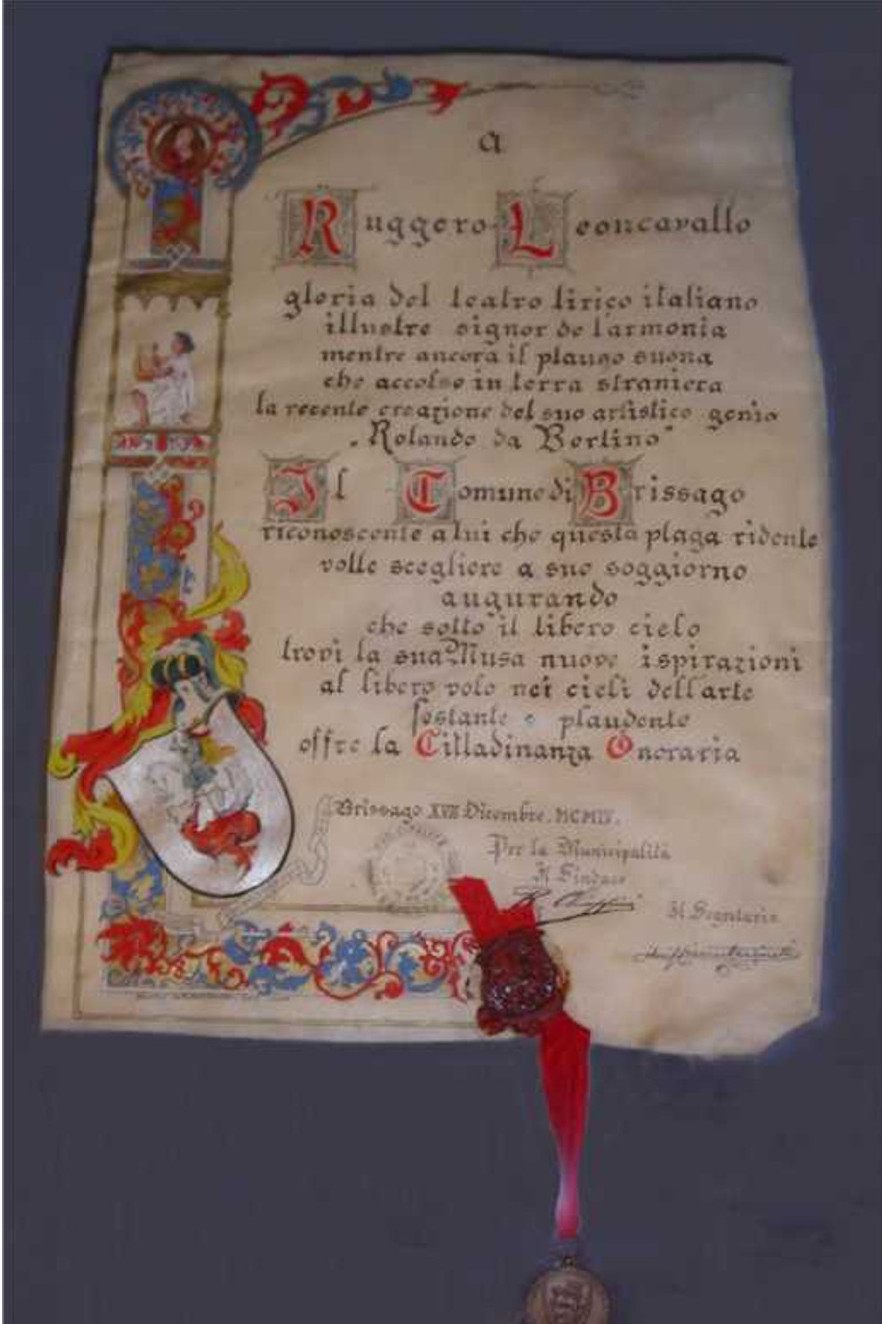 a
Ruggero Leoncavallo
gloria del teatro lirico italiano
illustre signor de l'armonia
mentre ancora il plauso suona
che accolse in terra straniera
la recente creazione del suo artistico genio
„Rolando da Berlino"
Il Comune di Brissago
riconoscente a lui che questa plaga ridente
volle scegliere a suo soggiorno
augurando
che sotto il libero cielo
trovi la sua Musa nuove ispirazioni
al libero volo nei cieli dell'arte
festante e plaudente
offre la Cittadinanza Onoraria
Brissago XVII Dicembre. MCMIV.
Per la Municipalità
Il Sindaco
Il Segretario